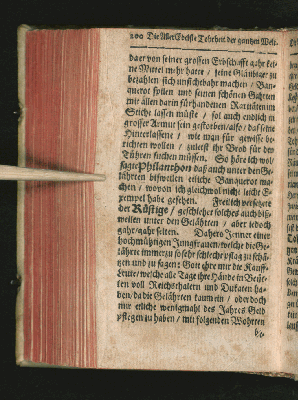 200 Die AllerEdelste Tohrheit der gantzen Welt.
daer von seiner grossen Erbschafft gahr kei-
ne Mittel mehr hatte / seine Gläubiger zu
bezahlen sich unsichtbahr machen / Ban-
querot spielen und seinen schönen Gahrten
mit allen darin fürhandenen Raritäten im
Stiche lassen müste / sol auch endlich in
grosser Armut sein gestorben / also / daß seine
Hinterlassene / wie man für gewisse be-
richten wollen / zuletst ihr Brod für den
Tühren suchen müssen. So höre ich wol /
sagte Philanthon daß auch unter den Ge-
lährten bisweilen etliche Banquerot ma-
chen / wovon ich gleichwol nicht leicht E-
xempel habe gesehen. Freilich versetzete
der Rüstige / geschiehet solches auch bis-
weilen unter den Gelährten / aber jedoch
gahr / gahr selten. Dahero Jenner einer
hochmühtigen Jungfrauen / welche die Ge-
lährte immer zu so sehr schlecht pflag zu schä-
tzen und zu sagen: Gott ehre mir die Kauff-
leute / welche alle Tage ihre Hände in Beut-
len voll Reichsthalern und Dukaten ha-
ben / da die Gelährten kaum ein / oder doch
nur etliche wenigmahl des Jahres Geld
pflegen zu haben / mit folgenden Wohrten
be-